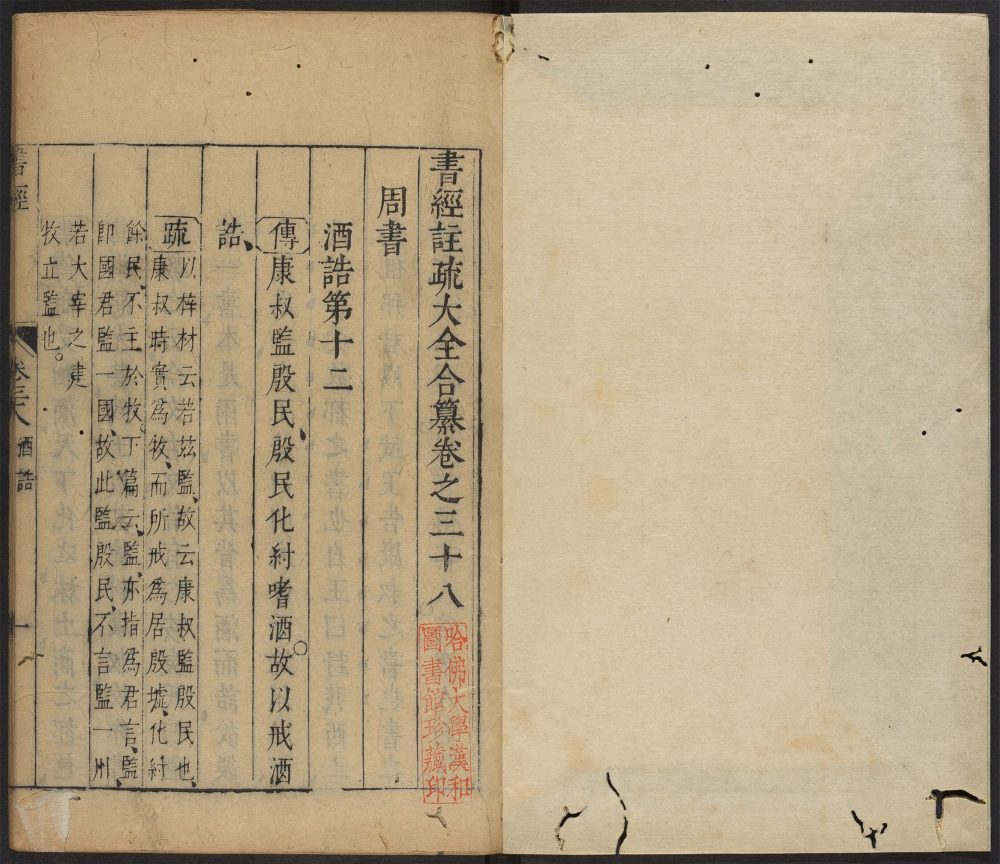 書經註疏大全合纂卷之三十八
哈佛大學漢和
圖書館珍藏印
周書
酒誥第十二
傳康叔監殷民、殷民化紂嗜酒。故以戒酒
誥、
疏以梓材云若茲監、故云康叔監殷民也、
康叔時實爲牧、而所戒爲居殷墟、化紂
餘民、不主於牧。下篇云、監、亦指爲君言、監
卽國君監一國、故此監殷民、不言監一州、
若大宰之建
牧立監也。
書經
卷三十八
酒誥
一